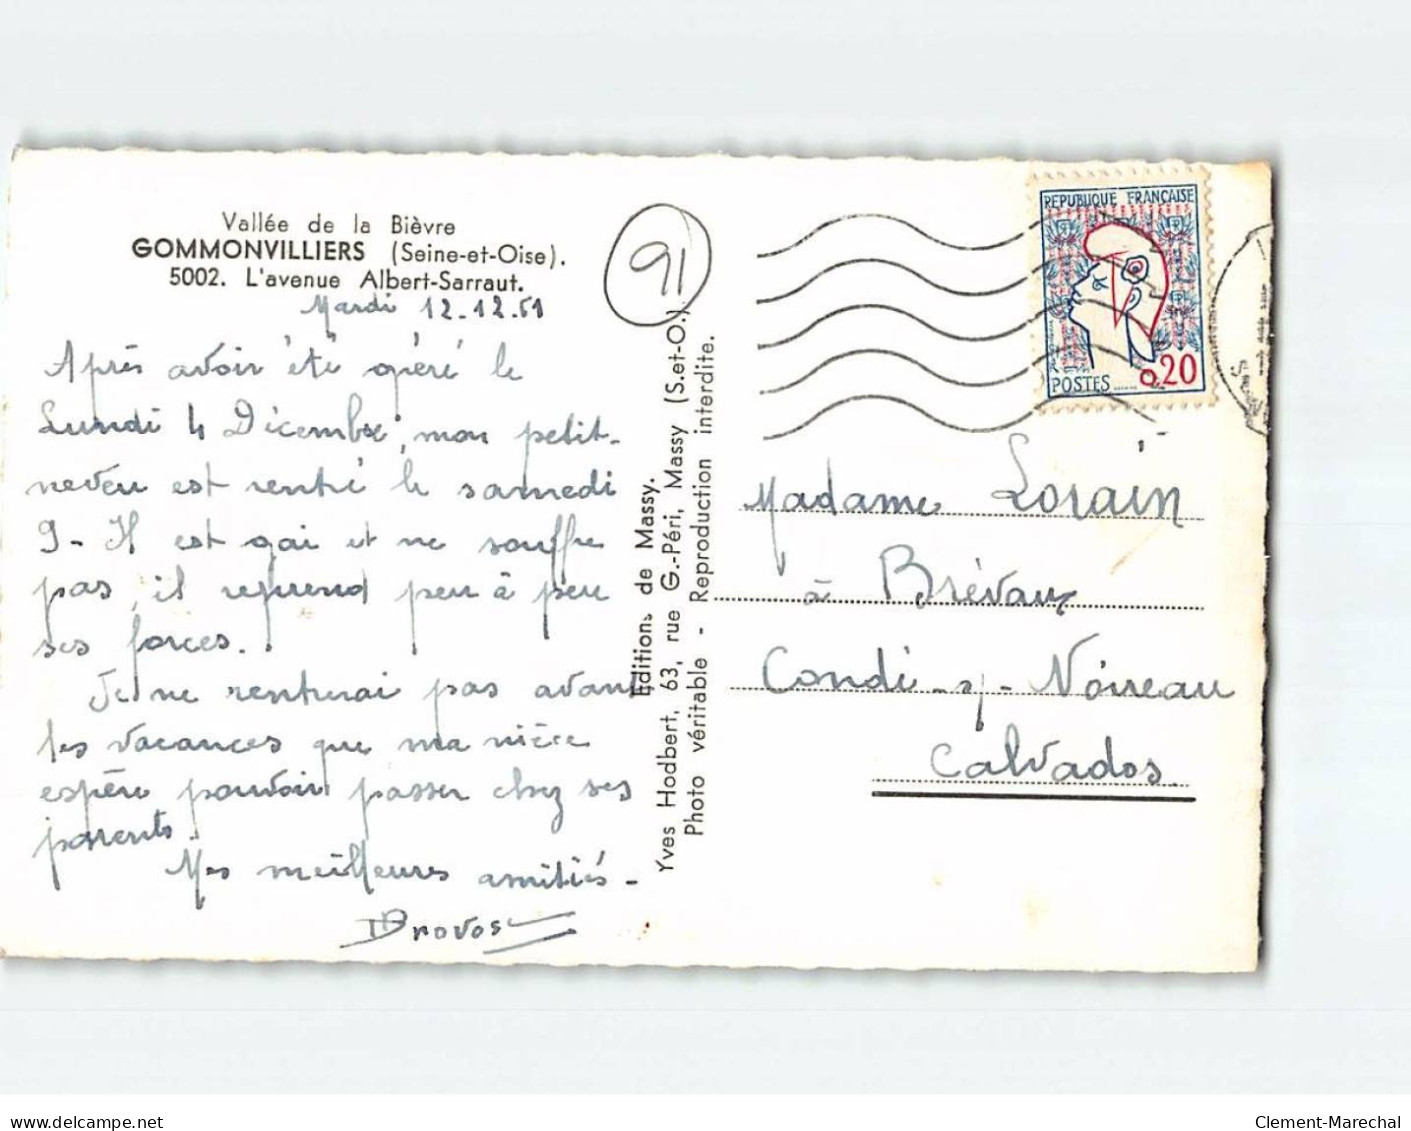 Vallée de la Bièvre
GOMMONVILLIERS (Seine-et-Oise).
5002. L'avenue Albert-Sarraut.
Mardi 12.12.61
Après avoir été opéré le
Lundi 4 Décembre, mon petit-
neveu est rentré le samedi
9 - Il est gai et ne souffre
pas, il reprend peu à peu
ses forces.
Je ne rentrerai pas avant
les vacances que ma nièce
espère pouvoir passer chez ses
parents.
Mes meilleures amitiés -
91
Editions de Massy.
Yves Hodbert, 63, rue G.-Péri, Massy (S.-et-O.)
Photo véritable - Reproduction interdite.
REPUBLIQUE FRANÇAISE
POSTES
0,20
Madame Lorain
à Brévaux
Condé-s/-Noireau
Calvados
delcampe.net
Clement-Marechal